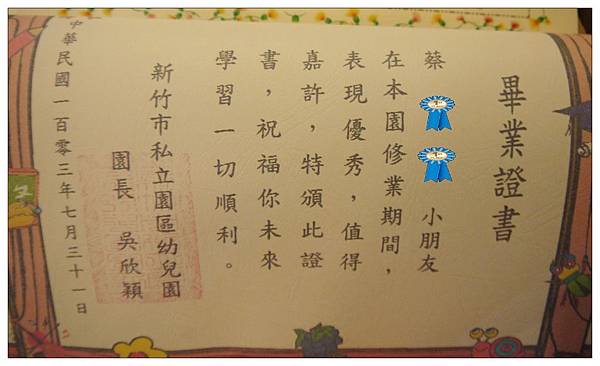 畢業證書
蔡 小朋友
在本園修業期間，
表現優秀，值得
嘉許，特頒此證
書，祝福你未來
學習一切順利。
新竹市私立園區幼兒園
園長 吳欣穎
中華民國一百零三年七月三十一日